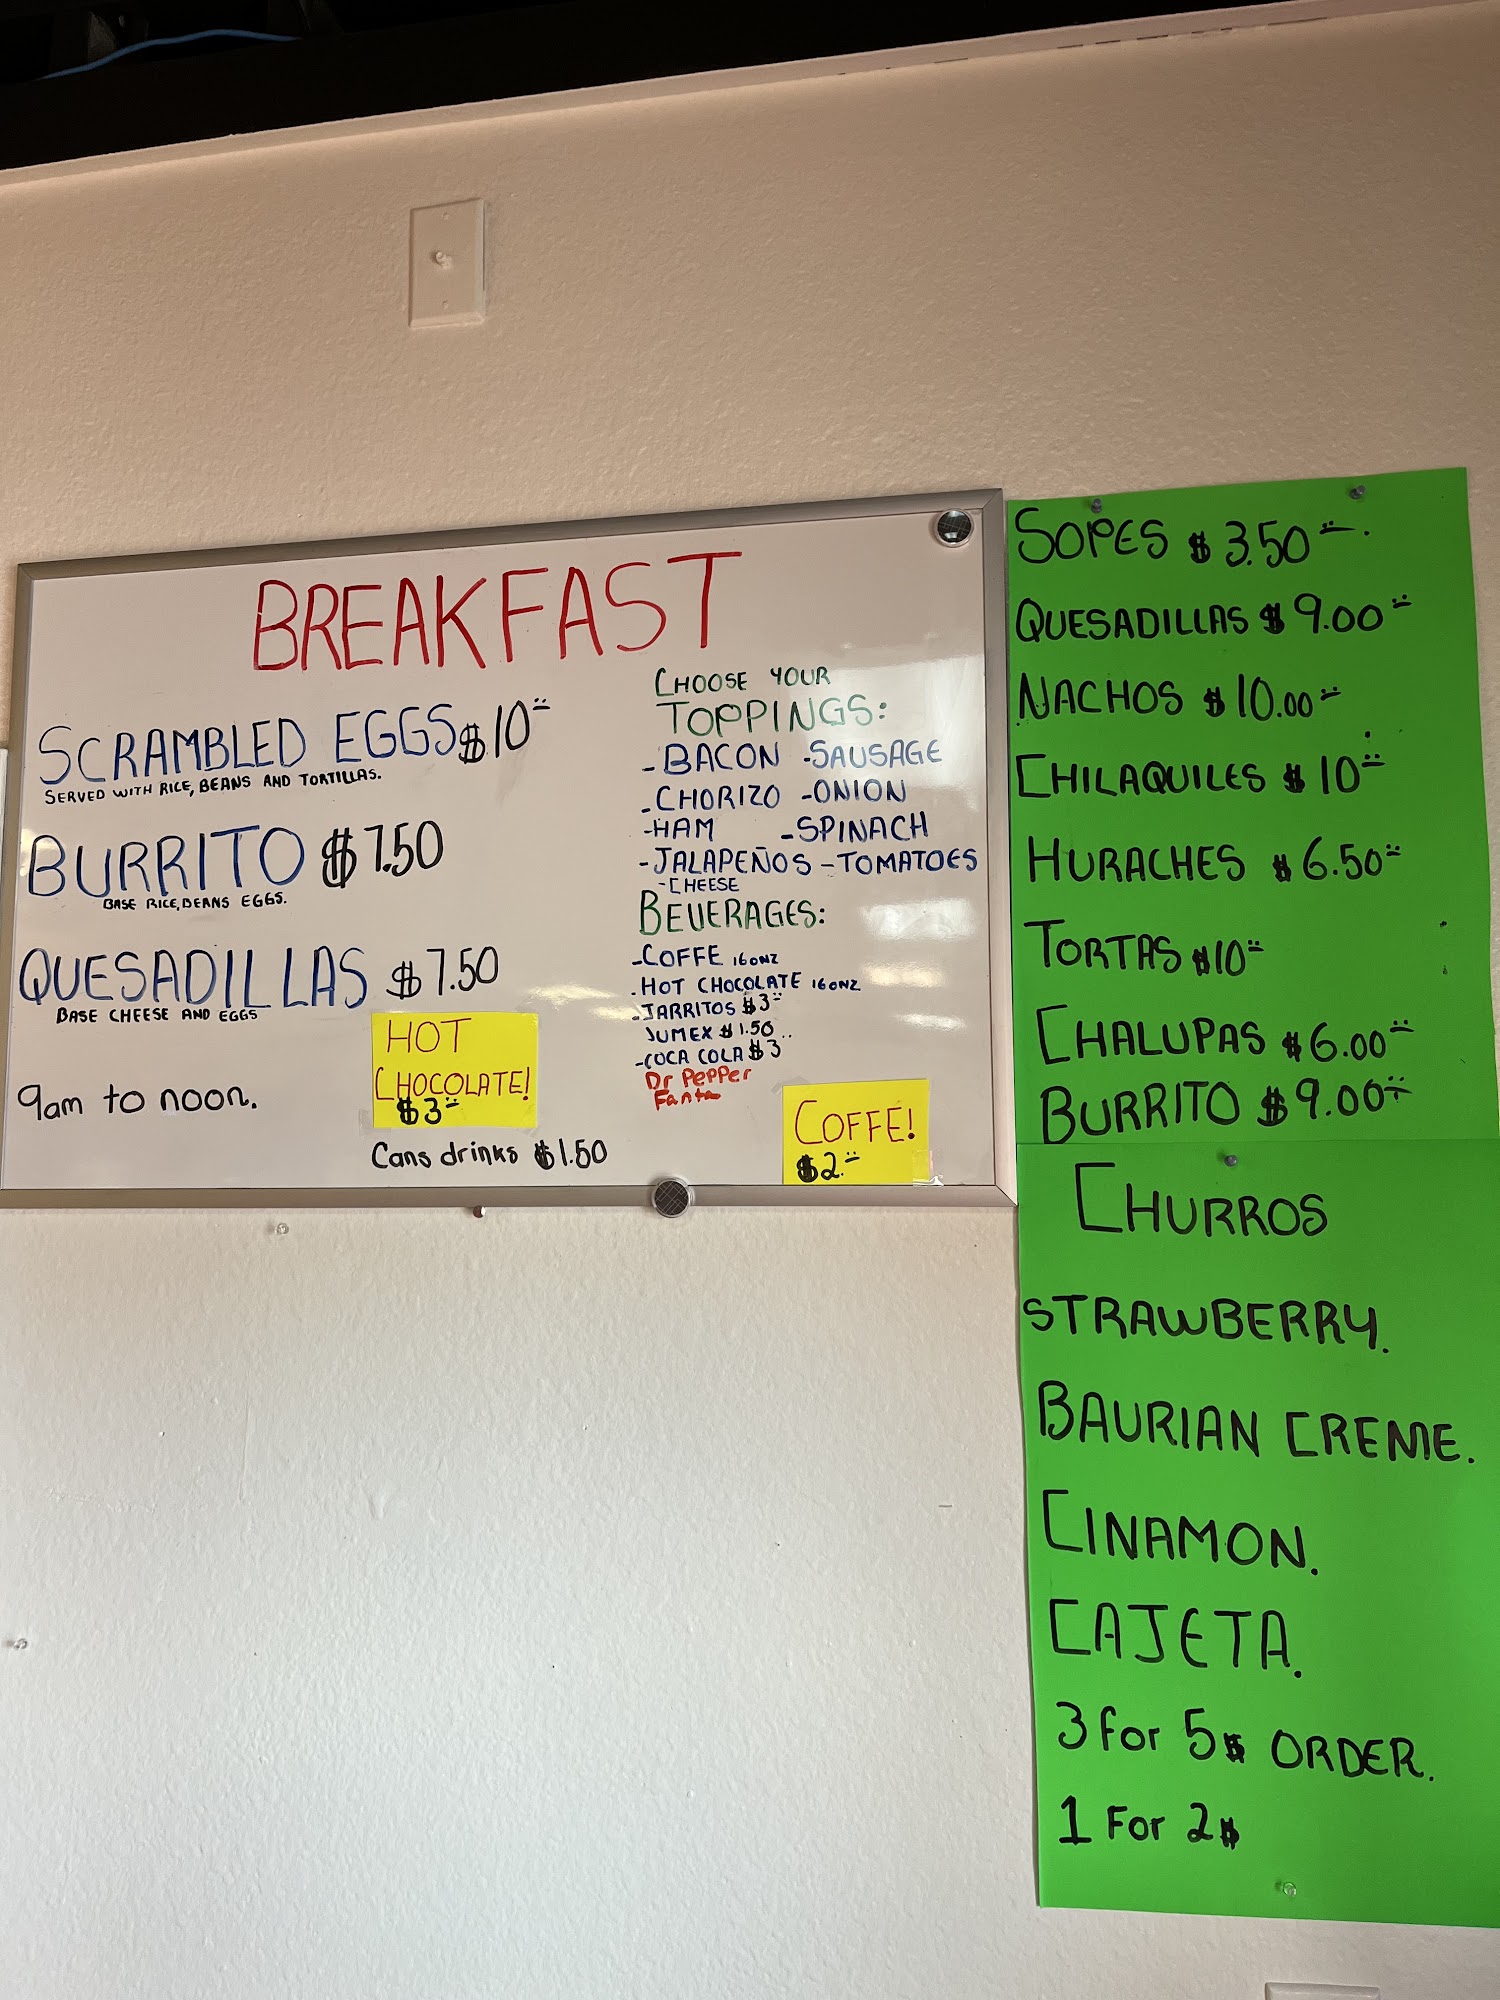 BREAKFAST
SCRAMBLED EGGS $10
SERVED WITH RICE, BEANS AND TORTILLAS.
BURRITO $7.50
BASE RICE, BEANS EGGS.
QUESADILLAS $7.50
BASE CHEESE AND EGGS
9am to noon.
HOT
CHOCOLATE!
$3
Cans drinks $1.50
CHOOSE YOUR
TOPPINGS:
-BACON -SAUSAGE
-CHORIZO -ONION
-HAM -SPINACH
-JALAPEÑOS -TOMATOES
-CHEESE
BEVERAGES:
-COFFE 16onz
-HOT CHOCOLATE 16onz
-JARRITOS $3
JUMEX $1.50
-COCA COLA $3
Dr Pepper
Fanta
COFFE!
$2
SOPES $3.50
QUESADILLAS $9.00
NACHOS $10.00
CHILAQUILES $10
HURACHES $6.50
TORTAS $10
CHALUPAS $6.00
BURRITO $9.00
CHURROS
STRAWBERRY.
BAURIAN CREME.
CINAMON.
CAJETA.
3 for 5$ ORDER.
1 For 2$